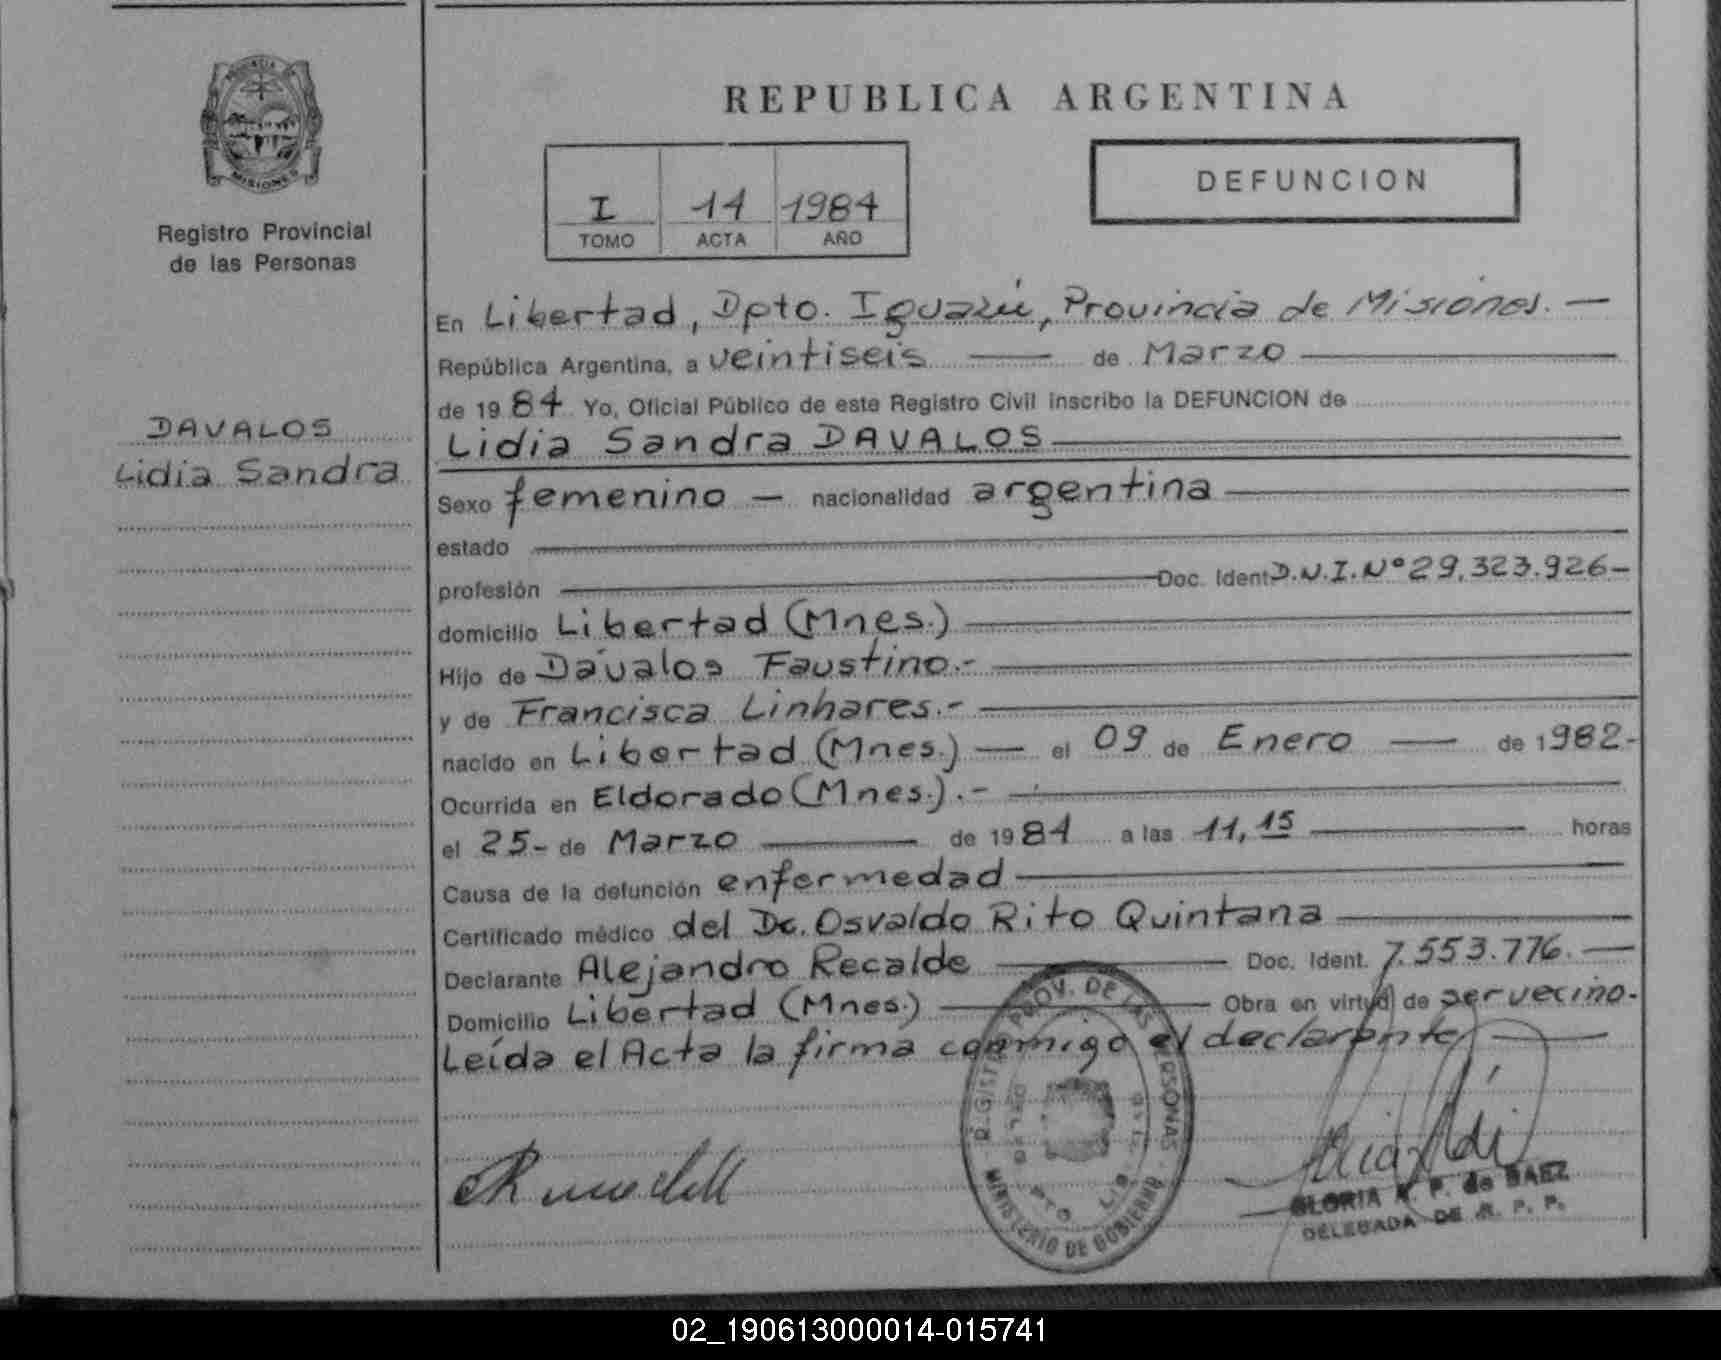 PROVINCIA DE
MISIONES
Registro Provincial
de las Personas
DAVALOS
Lidia Sandra
REPUBLICA ARGENTINA
I 14 1984
TOMO ACTA AÑO
DEFUNCION
En Libertad, Dpto. Iguazú, Provincia de Misiones. —
República Argentina, a veintiseis — de Marzo —
de 1984 Yo, Oficial Público de este Registro Civil inscribo la DEFUNCION de
Lidia Sandra DAVALOS —
Sexo femenino — nacionalidad argentina —
estado —
profesión — Doc. Ident D.N.I.Nº 29.323.926-
domicilio Libertad (Mnes.) —
Hijo de Dávalos Faustino.- —
y de Francisca Linhares.- —
nacido en Libertad (Mnes.) — el 09 de Enero — de 1982-
Ocurrida en Eldorado (Mnes.).- —
el 25- de Marzo — de 1984 a las 11,15 — horas
Causa de la defunción enfermedad —
Certificado médico del Dr. Osvaldo Rito Quintana —
Declarante Alejandro Recalde — Doc. Ident. 7.553.776. —
Domicilio Libertad (Mnes.) — Obra en virtud de ser vecino-
Leída el Acta la firma conmigo el declarante —
REGISTRO PROV. DE LAS PERSONAS
MINISTERIO DE GOBIERNO
GLORIA de BAEZ
DELEGADA DE R. P. P.
02_190613000014-015741